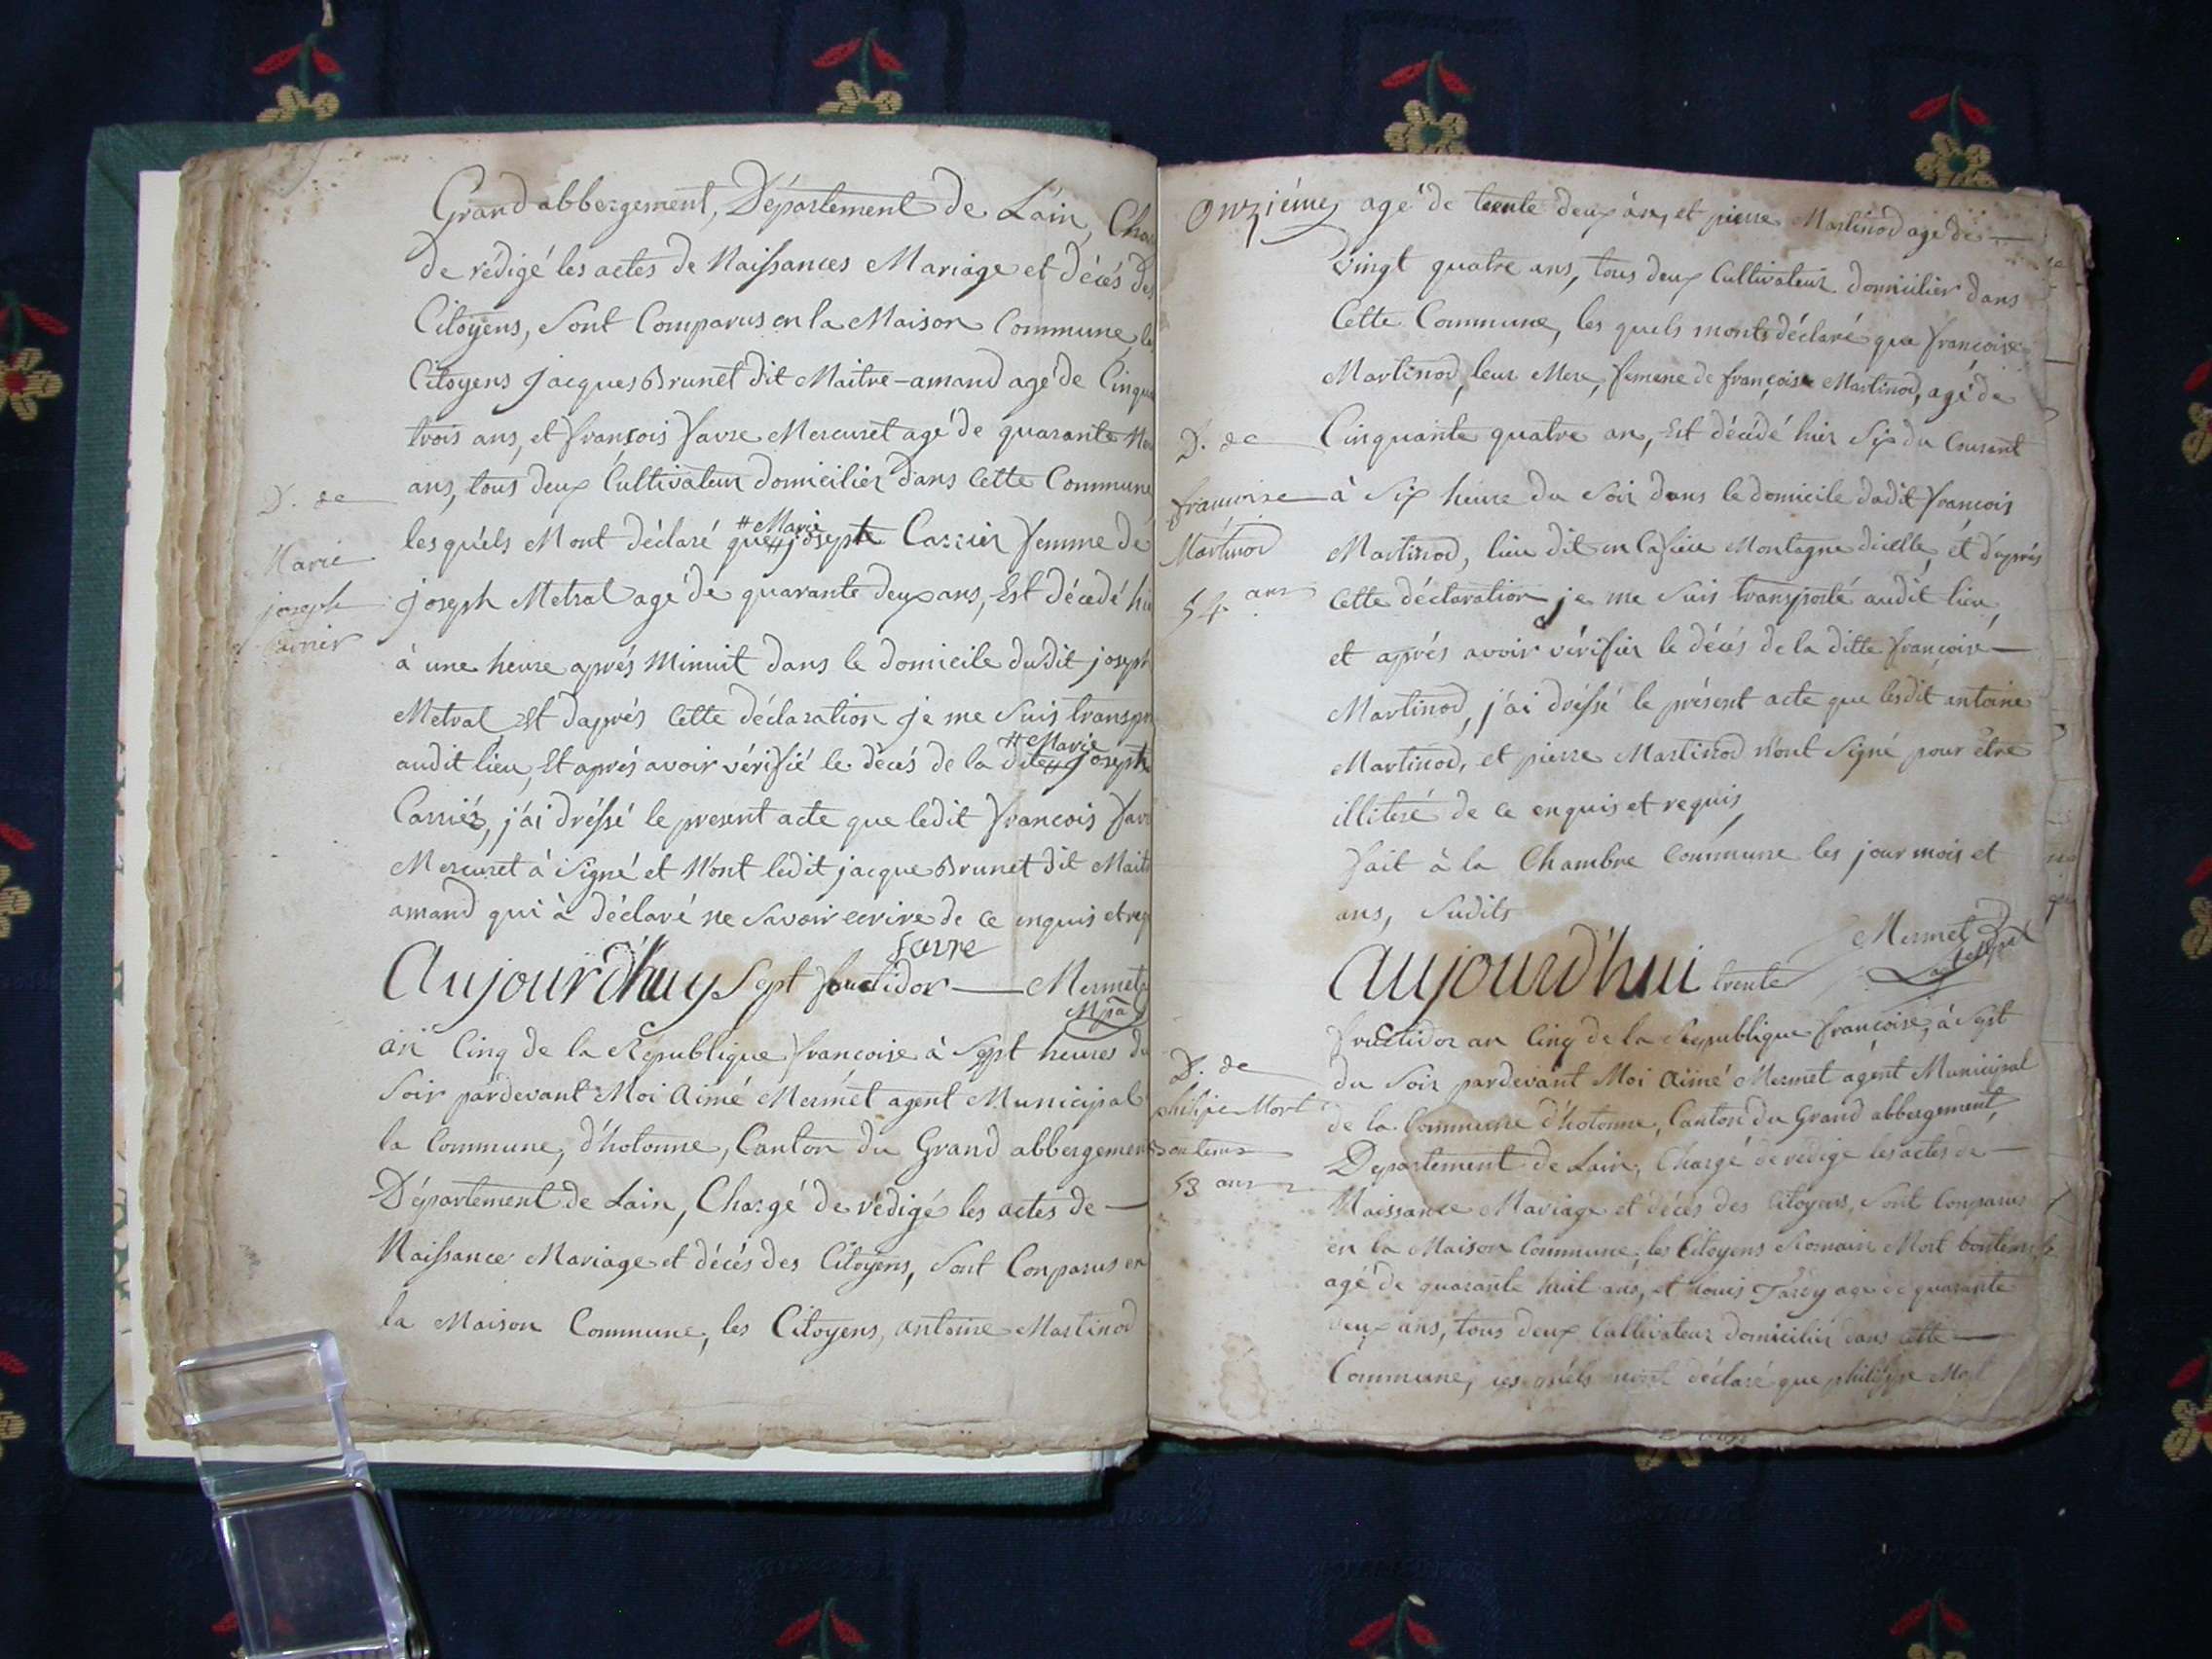 Grand abbergement, Département de Lain, Cha
de rédigé les actes de Naissances Mariage et décés des
Citoyens, Sont Comparus en la Maison Commune, les
Citoyens Jacques Brunet dit Maitre-amand agé de Cinqu
trois ans, et françois favre Mercuret agé de quarante
ans, tous deux Cultivateur domicilier dans Cette Commune
D. de
les quéls Mont déclaré que # joseph Carrier femme de
# Marie
Marie
joseph
Carrier
joseph Metral agé de quarante deux ans, Est décedé hier
à une heure aprés Minuit dans le domicile dudit joseph
Metral, Et daprés Cette déclaration je me Suis transpor
audit lieu, Et aprés avoir vérifié le décés de la dite # joseph
# Marie
Carriér, j'ai dréssé le present acte que ledit françois favre
Mercuret à Signé et Nont ledit jacque Brunet dit Maitre
amand qui à déclaré ne Savoir ecrire de ce enquis et req
favre
Aujourd'huy Sept fructidor — Mermet
an Cinq de la République françoise à Sept heures du
Soir pardevant Moi Aimé Mermet agent Municipal
la Commune, d'hotonne, Canton du Grand abbergement
Département de Lain, Chargé de rédigé les actes de —
Naissance Mariage et décés des Citoyens, Sont Conparus en
la Maison Commune, les Citoyens, antoine Martinod
Onziéme
agé de trente deux ans, et pierre Martinod agé de —
vingt quatre ans, tous deux Cultivateur domicilier dans
Cette Commune, les quels monts déclaré que françoise
Martinod, leur Mere, femme de françois Martinod, agé de
D. de
Cinquante quatre an, Est décédé hier Six du Courant
francoise
à Six heure du Soir dans le domicile dudit françois
Martinod
Martinod, lieu dit en Montagne dicelle, et d'aprés
54 ans
Cette déclaration je me Suis transporté audit lieu,
et aprés avoir vérifier le décés de la ditte françoise —
Martinod, j'ai dréssé le présent acte que lesdit antoine
Martinod, et pierre Martinod n'ont Signé pour être
illiteré de ce enquis et requis,
fait à la Chambre Commune les jour mois et
ans, Sudits
Mermet
agt mpal
Aujourd'hui trente
fructidor an Cinq de la République françoise, à Sept
D. de
du Soir pardevant Moi Aimé Mermet agent Municipal
philipe Mort
de la Commune d'hotonne, Canton du Grand abbergement,
Bontems
Departement de Lain, Chargé de redigé les actes de —
53 ans
Naissance Mariage et décés des Citoyens, Sont Conparus
en la Maison Commune, les Citoyens Romain Mort bontems
agé de quarante huit ans, et Louis Tardy agé de quarante
deux ans, tous deux Cultivateur domicilier dans Cette —
Commune, les quéls mont déclaré que philippe Mort